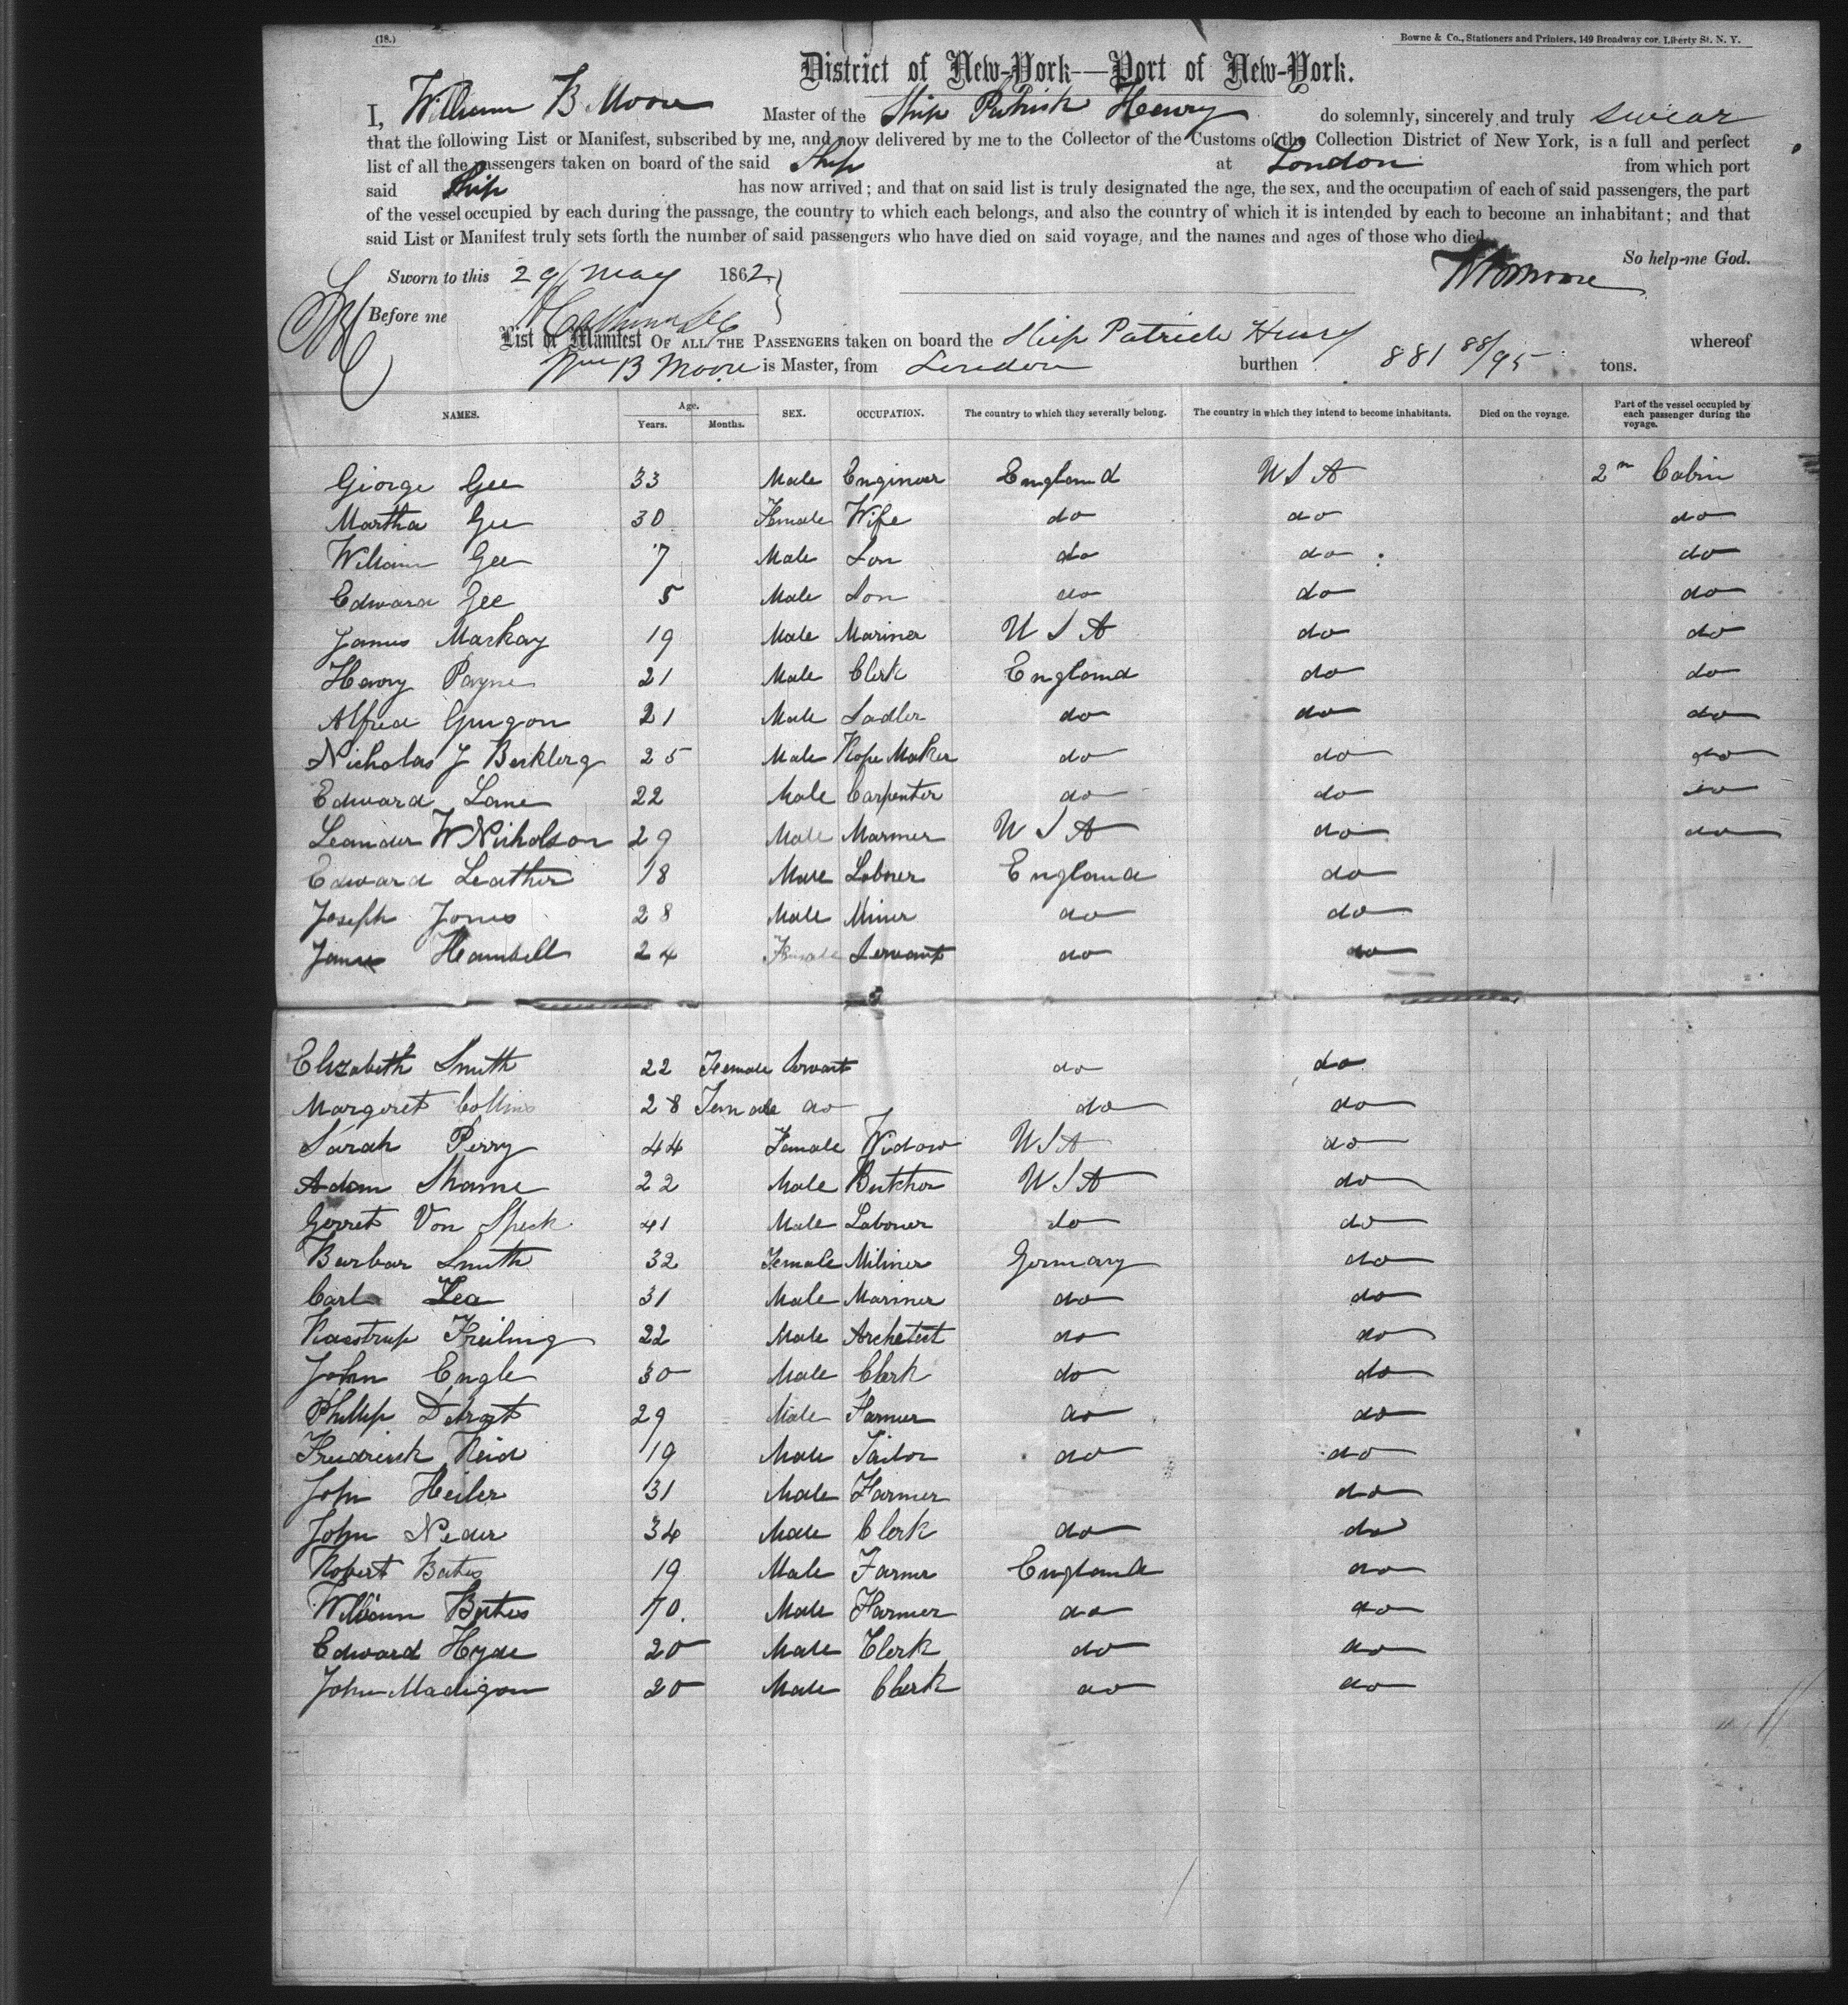 (18.)
Bowne & Co., Stationers and Printers, 149 Broadway cor. Liberty St. N. Y.
District of New-York—Port of New-York.
I, William B Moore Master of the Ship Patrick Henry do solemnly, sincerely and truly swear
that the following List or Manifest, subscribed by me, and now delivered by me to the Collector of the Customs of the Collection District of New York, is a full and perfect
list of all the passengers taken on board of the said Ship at London from which port
said Ship has now arrived; and that on said list is truly designated the age, the sex, and the occupation of each of said passengers, the part
of the vessel occupied by each during the passage, the country to which each belongs, and also the country of which it is intended by each to become an inhabitant; and that
said List or Manifest truly sets forth the number of said passengers who have died on said voyage, and the names and ages of those who died.
So help me God.
Sworn to this 29 May 1862
Wm B Moore
Before me
List or Manifest OF ALL THE PASSENGERS taken on board the Ship Patrick Henry whereof
Wm B Moore is Master, from London burthen 881 88/95 tons.
NAMES. Age. Years. Months. SEX. OCCUPATION. The country to which they severally belong. The country in which they intend to become inhabitants. Died on the voyage. Part of the vessel occupied by each passenger during the voyage.
George Gee 33 Male Engineer England U S A 2n Cabin
Martha Gee 30 Female Wife do do do
William Gee 7 Male Son do do do
Edward Gee 5 Male Son do do do
James Markay 19 Male Mariner U S A do do
Henry Payne 21 Male Clerk England do do
Alfred 21 Male Sadler do do do
Nicholas J Berklerg 25 Male Rope Maker do do do
Edward Lane 22 Male Carpenter do do do
Leander W Nicholson 29 Male Mariner U S A do do
Edward Leather 18 Male Laborer England do
Joseph Jones 28 Male Miner do do
Jane Hambell 24 Female Servant do do
Elizabeth Smith 22 Female Servant do do
Margeret Collins 28 Female do do do
Sarah Perry 44 Female Widow U S A do
Adam Shame 22 Male Butcher U S A do
Gerret Von Speck 41 Male Laborer do do
Barbar Smith 32 Female Miliner Germany do
Carl Lea 31 Male Mariner do do
Kaastrup Freiling 22 Male Architect do do
John Engle 30 Male Clerk do do
Phillip Detroit 29 Male Farmer do do
Fredrick Reid 19 Male Tailor do do
John Heiler 31 Male Farmer do
John Neder 34 Male Clerk do do
Robert Bates 19 Male Farmer England do
William Bates 70. Male Farmer do do
Edward Hyde 20 Male Clerk do do
John Madigan 20 Male Clerk do do